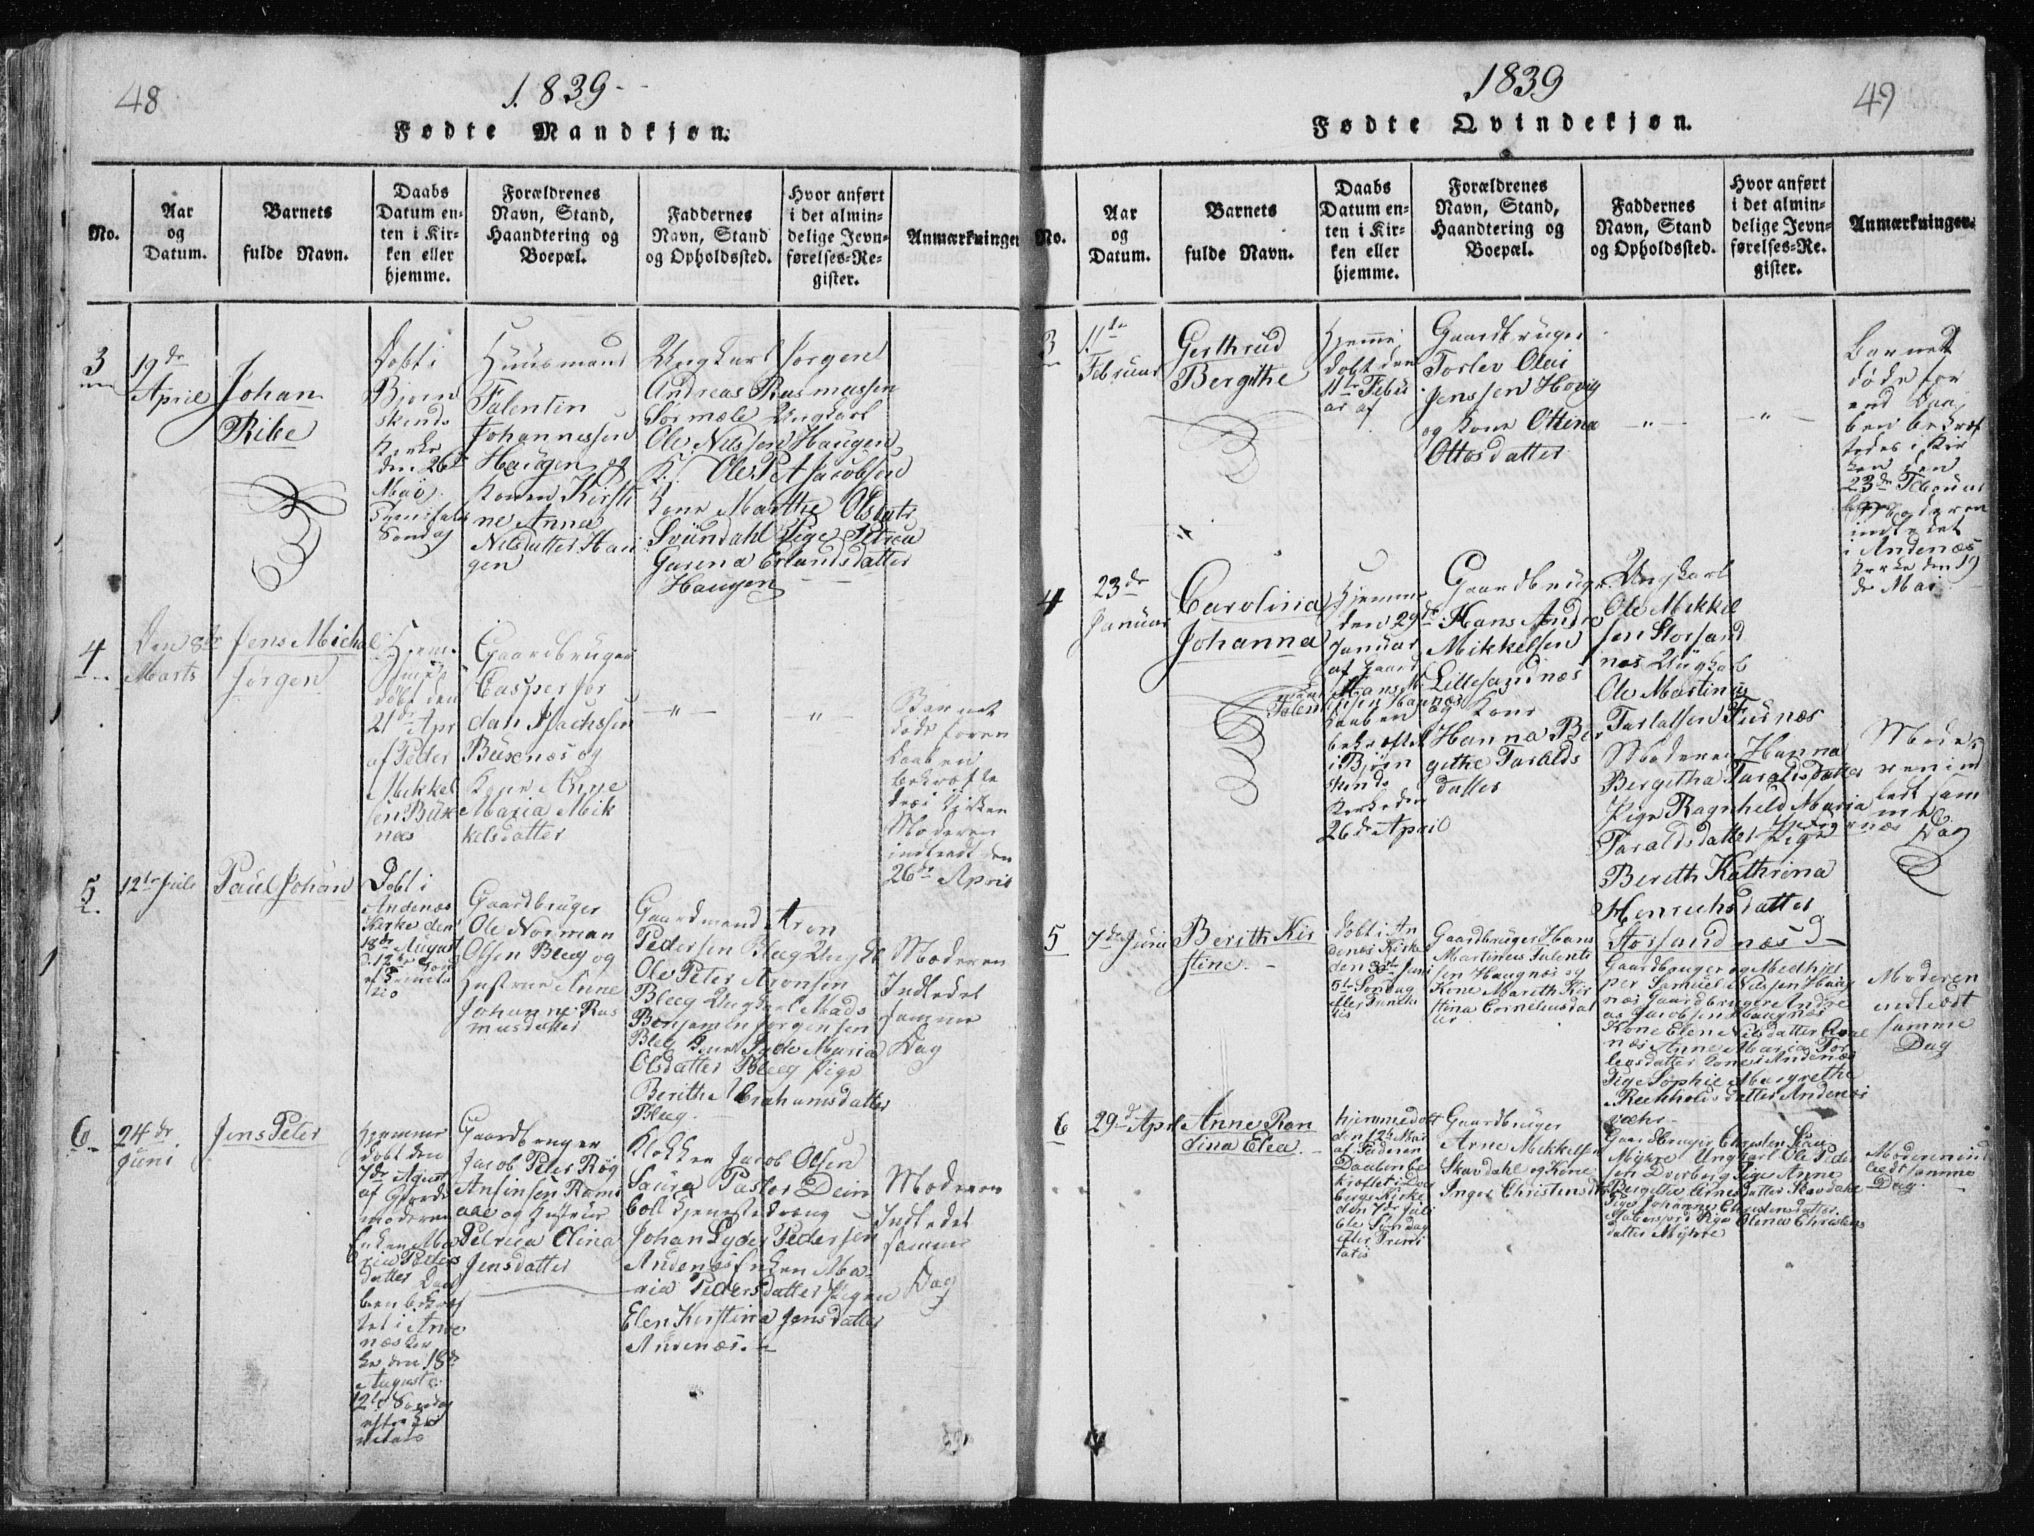 48
1839
Fødte Mandkjøn.
No.
Aar
og
Datum.
Barnets
fulde Navn.
Daabs
Datum en-
ten i Kir-
ken eller
hjemme.
Forældrenes
Navn, Stand,
Haandtering og
Boepæl.
Faddernes
Navn, Stand
og Opholdssted.
Hvor anført
i det almin-
delige Jevn-
førelses-Re-
gister.
Anmærkninger
3
19de
April
Johan
Ribe
Døbt i
Bjørn
skinds
Kirke
den 26de
Mai
Søndag
Huusmand
Falentin
Johannessen
Haugen og
Konen Kirsti
ne Anna
Nilsdatter Hau
gen
Ungkarl Jørgen
Andreas Rasmussen
Ungkarl
Ole Nilssen Haugen
K. Ole Pet Jacobsen
Kone Marthe Olsdatr
Pige Petrea
Gurina Erlandsdatter
Haugen
4
Den 8de
Marts
Jens Michal
Jørgen
døbt den
21de Apr
af Peder
Mikkel
sen Buxe
næs
Gaardbruger
Casper Jør
dan Isachsen
Buxnæs og
Kone Anne
Maria Mik
kelsdatter
Barnet
døde foren
Daaben
bekræfte
des i Kirken
Moderen
indledt den
26de April
5
12te Juli
Paul Johan
Døbt i
Andenæs
Kirke den
18de August
Gaardbruger
Ole Norman
Olsen Bleeg og
Hustrue Anne
Johanne Ras
musdatter
Gaardmand Aron
Pedersen Bleeg Ungkl
Ole Peter Aronsen
Bleeg Ungkarl Mads
Benjamin Jørgensen
Bleg Kone Inde Maria
Olsdatter Bleeg Pige
Berithe Abrahamsdatter
Bleeg
Moderen
Indledet
samme
Dag
6
24de
Juni
Jens Peter
Hjemme
døbt den
7de August
af Gjorde
moderen
Enken Ma
ria Peders
datter Daa
ben bekræf
tet i Ande
næs Kir
ke den 18de
August
12te Søndag
Gaardbruger
Jacob Peter Røg
Ansinsen Rams
aae og Hustrue
Petrica Olina
Jensdatter
Klokker Jacob Olsen
Saura Pastor Dein
boll tjenestedreng
Johan Lyder Pedersen
Andenes Enken Ma-
ria Pedersdatter Pigen
Elen Kirstina Jensdatter
Andenæs.
Moderen
Indledet
samme
Dag
1839
49
Fødte Qvindekjøn.
No.
Aar
og
Datum.
Barnets
fulde Navn.
Daabs
Datum en-
ten i Kir-
ken eller
hjemme.
Forældrenes
Navn, Stand,
Haandtering og
Boepæl.
Faddernes
Navn, Stand
og Opholdssted.
Hvor anført
i det almin-
delige Jevn-
førelses-Re-
gister.
Anmærkninger.
3
11te
Februar
Gerthrud
Bergithe
Hjemme
døbt den
11te Febru
ar af
Gaardbruger
Torlev Olai
Jenssen Hovig
og Kone Ottina
Ottosdatter
Barnet
døde før
end Daa
ben bekræf
tedes i Kir
ken den
23de Februar
Moderen
indledet
i Andenæs
Kirke den 19
de Mai
4
23de
Januar
Carolina
Johanna
Hjemme
den 29de
Januar
af Gaard
mand Hans
Falentinsen Haugnæs
Daaben
bekræftet
i Bjørn
skinds
Kirke den
26de April
Gaardbruger
Hans Andr
Mikkelsen
Lillesandnæs
og Kone
Hanna Ber
gethe Taralds
datter
Ungkarl
Ole Mikkel
sen Storsand
næs Ungkarl
Ole Martinus
Taraldsen Furnæs
Moderen Hanna
Bergitha Taraldsdatter
Pige Ragnhild Maria
Taraldsdatter
Pige
Bereth Kathrina
Henrichsdatter
Storsandnæs
Mode
ren ind
ledt sam
me
Dag
5
7de Juni
Berith Kir
stine
Døbt i An
denæs Kirke
den 30te Juni
5te Søndag
efter Trinita
tis
Gaardbruger Hans
Martinus Falenti
sen Haugnæs og
Kone Mareth Kir
stina Corneliusdat
ter
Gaardbruger og Medhjel
per Samuel Nilssen Haug
næs Gaardbruger Andre
as Jacobsen Haugnæs
Kone Elen Nilsdatter Qval
næs Anne Maria Tor
leivsdatter Kone Andenæs
Pige Sophie Margrethe
Rechholdsdatter Andenæs
væhr
Moderen
indledt
samme
Dag
6
29de Apr
Anne Ran
dina Elea
hjemmedøbt
den 12te Mai
af Faderen
Daaben be
kræftet i Dver
bergs Kirke
den 7de Juli
6te Søndag
efter Trini
tatis
Gaardbruger
Arne Mikkelsen
Skavdahl og Kone
Inger Christensdt
Gaardbruger Christen
Myhre Ungkarl Ole Peder
sen Dverberg Pige Anne
Bergitta Arnesdatter Skavdahl
Pige Johanne Christensdatter
Pige Olena Christens
datter Myhre
Moderen ind
ledt samme
Dag